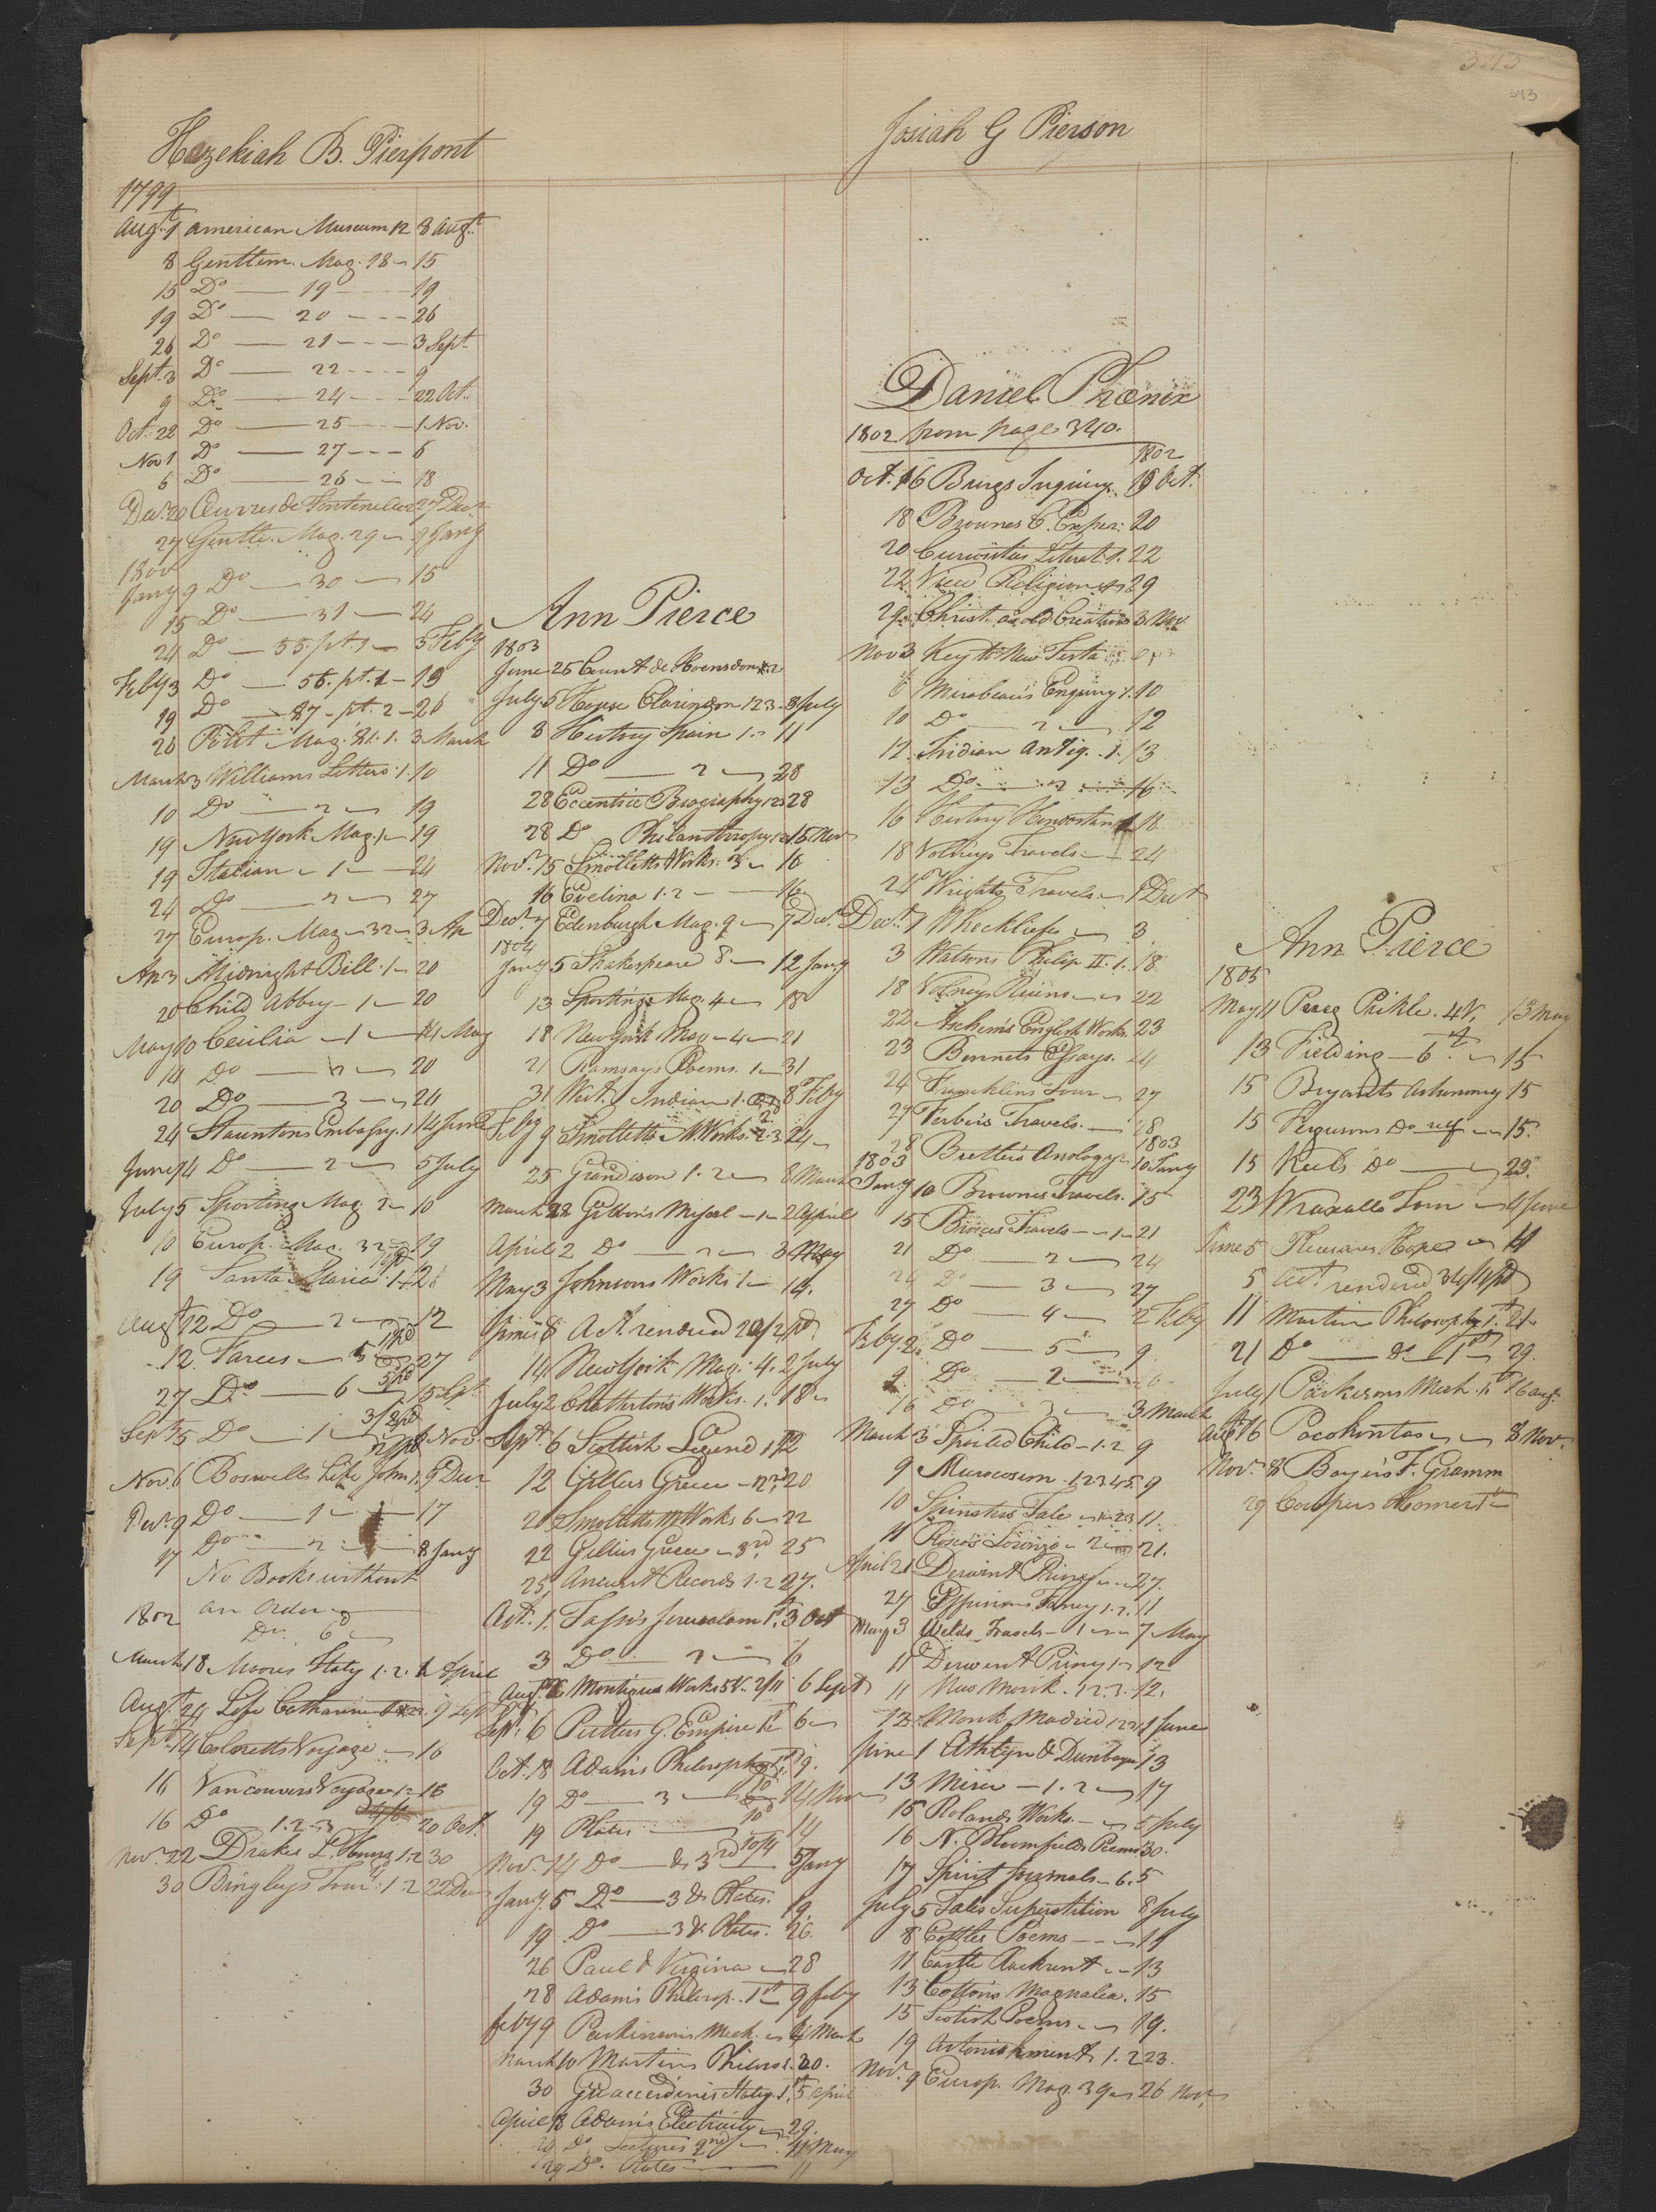 343
Hezekiah B. Pierpont
1799
Augt. 1 American Museum 12 8 Augt.
8 Gentlem. Mag. 18 15
15 Do 19 19
19 Do 20 26
26 Do 21 3 Sept.
Sept. 3 Do 22 9
9 Do 24 22 Oct.
Oct. 22 Do 25 1 Nov.
Nov 1 Do 27 6
6 Do 26 18
Decr. 20 Œuvres de Fontenelle 27 Decr
27 Gentle. Mag. 29 9 Jany
1800
Jany 9 Do 30 15
15 Do 31 24
24 Do 55. pt. 1 3 Feby
Feby 3 Do 56. pt. 1 19
19 Do 87 pt. 2 26
26 Polit Mag. 81. 1. 3 March
March 3 Williams Letters 1. 10
10 Do 2 19
19 New York Mag. 1 19
19 Italian 1 24
24 Do 2 27
27 Europ. Mag 32 3. Ap
Ap 3 Midnight Bell. 1 20
20 Child Abbey 1 20
May 10 Cecilia 1 14 May
14 Do 2 20
20 Do 3 24
24 Stauntons Embassy. 1 14 June
June 14 Do 2 5 July
July 5 Sporting Mag. 2 10
10 Europ. Mag. 32 19
19 Santa Maria. 1. 28
Augt 12 Do 2 12
12. Farces 5 27
27 Do 6 5 Sept.
Sept. 5 Do 1 Nov.
Nov. 6 Boswells Life John. 1. 9 Decr
Decr. 9 Do 1 17
17 Do 2 8 Jany
No Books without
an Order
1802 Dr. 6d
March 18 Moores Italy 1. 2. April
Augt. 24 Life Catharine 9 Sept
Sept. 14 Colnetts Voyage 16
16 Vancouvers Voyage 1 16
16 Do 1. 2. 3 20 Oct.
Nov. 22 Drakes L. Hours 1. 2 30
30 Bingleys Tour. 1. 2 22 Decr
Ann Pierce
1803
June 25 Count de Hoensdon 2
July 5 House Clarindon 1 2 3 8 July
8 History Spain 1. 11
11 Do 2 28
28 Eccentric Biography 28
28 Do Philanthropy 15 Nov
Nov. 15 Smolletts Works. 3 16
16 Evelina 1. 2 16
Decr. 7 Edenburgh Mag. 9 9 Decr.
1804
Jany 5 Shakespeare 8 12 Jany
13 Sporting Mag. 4 18
18 New York Mag 4 21
21 Ramsays Poems. 1 31
31 West Indian 1. 8 Feby
Feby 9 Smolletts M. Works. 2. 3 24
25 Grandison 1. 2 8 March
March 28 Gibbon's Miscel 1 2 April
April 2 Do 2 3 May
May 3 Johnsons Works 1 14.
June 8 Act. rendered 20/2 pd
14 New York Mag. 4. 2 July
July 2 Chatterton's Works. 1. 18
Sept. 6 Scottish Legend 12
12 Gillies Greece 2nd 20
20 Smolletts M Works 6 22
22 Gillies Greece 3rd. 25
25 Ancient Records 1. 2 27.
Oct. 1. Tasso's Jerusalem 1st. 3 Oct
3 Do 2 6
Augt. Montigues Works 5 V. 2/11 6 Sept
Sept. 6 Putters G. Empire 1st 6
Oct. 18 Adams Philosophy 1st 19.
19 Do 3 14 Nov
19 Plates 14
Nov. 14 Do & 3rd 5 Jany
Jany. 5 Do 3 & Plates. 19.
19 Do 3 & Plates. 26.
26 Paul & Virginia 28
28 Adams Philosop. 1st 9 feby
feby 9 Parkinsons Mech. March
March 10 Martins Philoso. 1. 30.
30 Guiccerdinis Italy. 1. 5 April
April 18 Adams Electricity 29.
29 Do. Lectures 2nd 11 May
29 Do. Plates 11
Josiah G Pierson
Daniel Phœnix
1802 from page 340.
1802
Oct. 16 Burgs Inquiry. 18 Oct.
18 Brownes C. Exper: 20
20 Curiosities Literat. 1. 22
22 View Religion 29
29 Christ. as old Creation 3 Nov.
Nov 3 Key to New Testa
6 Mirabeau's Enquiry 1. 10
10 Do 2 12
12 Indian Antiq. 1. 13
13 Do 2 16
16 History Hindostan 1 18
18 Volney's Travels 24
24 Wrights Travels 1 Decr
Decr. 1 Wheckliefe 3
3 Watsons Philip II. 1. 18
18 Volneys Ruins 22
22 Aschem's English Works. 23
23 Bennets Essays. 24
24 Francklins Tour 27
27 Ferber's Travels. 28
28 Butler's Analogy 10 Jany 1803
1803
Jany 10 Brownes Travels. 15
15 Bruces Travels 1 21
21 Do 2 24
24 Do 3 27
27 Do 4 2 Feby
Feby. 2. Do 5 9
9 Do 2
16 Do 3 3 March
March 3 Spoiled Child 1. 2 9
9 Microcosm 1 2 3 4 5. 9
10 Spinsters Tale 1. 2 3 11.
11 Roscos Lorenzo 2 21.
April 21 Derwent Priory 27.
27 Effusions Fancy 1. 2. 11
May 3 Welds Travels 1 7 May
11 Derwent Priory 1 12
11 New Monk. 1. 2. 3. 12.
12 Monk Madrid 1 2 3 1 June
June 1 Athlyn & Dunbayne 13
13 Miser 1. 2 17
15 Rolands Works. 5 July
16 N. Bloomfields Poems 30.
17 Spirit Journals 6. 5
July 5 Tales Superstition 8 July
8 Cottles Poems 11
11 Castle Rackrent 13
13 Cotton's Magnalia. 15
15 Scotish Poems 19.
19 Astonishment 1. 2 23.
Nov. 9 Europ. Mag. 39 26 Nov
Ann Pierce
1805
May 11 Pereg Pickle. 4 V. 13 May
13 Fielding 6th 15
15 Bryants Astronomy 15
15 Fergusons Do 15.
15 Keils Do 23.
23 Wraxalls Tour 4 June
June 5 Pleasures Hope 11
5 Act. rendered 34/ pd
11 Martin Philosophy 1st. 21.
21 Do & 1st 29.
July 1 Parkisons Mech. 1st 16 Aug.
Augt 16 Pocohontas 8 Nov.
Nov. 8 Boyer's F. Gramm
29 Cowpers Homer 1st